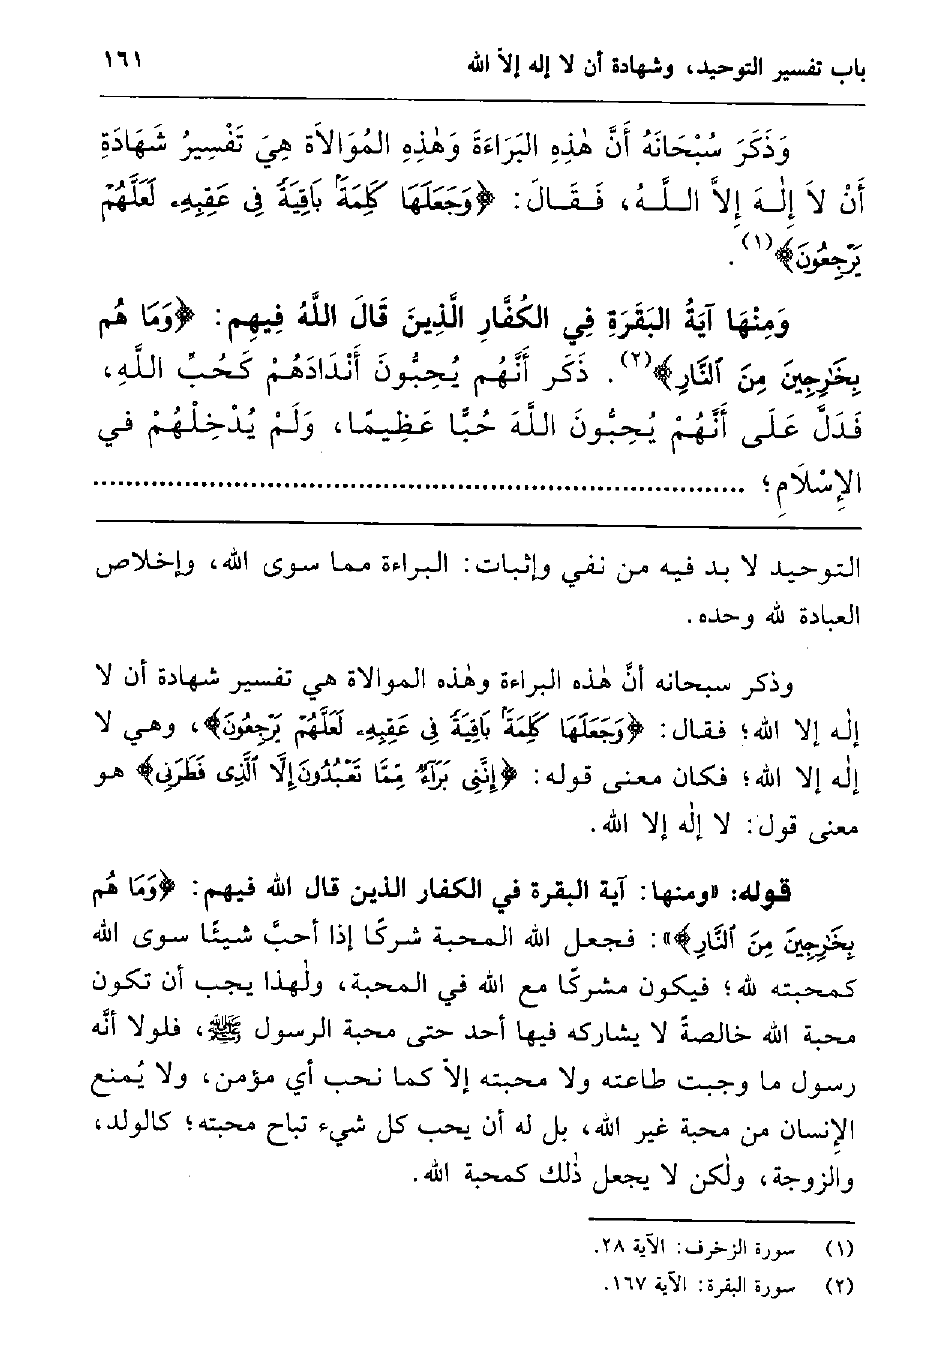 باب تفسير التوحيد، وشهادة أن لا إله إلاَّ الله ١٦١
وَذَكَرَ سُبْحَانَهُ أَنَّ هٰذِهِ البَرَاءَةَ وَهٰذِهِ المُوَالاَةَ هِيَ تَفْسِيرُ شَهَادَةِ
أَنْ لاَ إِلٰهَ إِلاَّ اللَّهُ، فَقَالَ: ﴿وَجَعَلَهَا كَلِمَةً بَاقِيَةً فِى عَقِبِهِۦ لَعَلَّهُمْ
يَرْجِعُونَ﴾(١).
وَمِنْهَا آيَةُ البَقَرَةِ فِي الكُفَّارِ الَّذِينَ قَالَ اللَّهُ فِيهِم: ﴿وَمَا هُم
بِخَٰرِجِينَ مِنَ ٱلنَّارِ﴾(٢). ذَكَر أَنَّهُم يُحِبُّونَ أَنْدَادَهُمْ كَحُبِّ اللَّهِ،
فَدَلَّ عَلَى أَنَّهُمْ يُحِبُّونَ اللَّهَ حُبًّا عَظِيمًا، وَلَمْ يُدْخِلْهُمْ في
الإِسْلاَمِ؛ ......................................................................
التوحيد لا بد فيه من نفي وإثبات: البراءة مما سوى الله، وإخلاص
العبادة لله وحده.
وذكر سبحانه أنَّ هٰذه البراءة وهٰذه الموالاة هي تفسير شهادة أن لا
إلٰه إلا الله؛ فقال: ﴿وَجَعَلَهَا كَلِمَةً بَاقِيَةً فِى عَقِبِهِۦ لَعَلَّهُمْ يَرْجِعُونَ﴾، وهي لا
إلٰه إلا الله؛ فكان معنى قوله: ﴿إِنَّنِى بَرَآءٌ مِّمَّا تَعْبُدُونَ إِلَّا ٱلَّذِى فَطَرَنِى﴾ هو
معنى قول: لا إلٰه إلا الله.
قوله: «ومنها: آية البقرة في الكفار الذين قال الله فيهم: ﴿وَمَا هُم
بِخَٰرِجِينَ مِنَ ٱلنَّارِ﴾»: فجعل الله المحبة شركًا إذا أحبَّ شيئًا سوى الله
كمحبته لله؛ فيكون مشركًا مع الله في المحبة، ولهٰذا يجب أن تكون
محبة الله خالصةً لا يشاركه فيها أحد حتى محبة الرسول ﷺ، فلولا أنَّه
رسول ما وجبت طاعته ولا محبته إلاَّ كما نحب أي مؤمن، ولا يُمنع
الإنسان من محبة غير الله، بل له أن يحب كل شيء تباح محبته؛ كالولد،
والزوجة، ولٰكن لا يجعل ذٰلك كمحبة الله.
(١) سورة الزخرف: الآية ٢٨.
(٢) سورة البقرة: الآية ١٦٧.